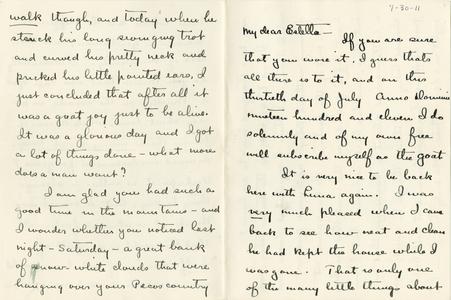 walk though, and today when he
struck his long swinging trot
and curved his pretty neck and
pricked his little pointed ears, I
just concluded that after all it
was a great joy just to be alive.
It was a glorious day and I got
a lot of things done - what more
does a man want?
I am glad you had such a
good time in the mountains - and
I wonder whether you noticed last
night - Saturday - a great bank
of snow white clouds that were
hanging over your Pecos country
7-30-11
My dear Estella -
If you are sure
that you wore it, I guess thats
all there is to it, and on this
thirtieth day of July Anno Domini
nineteen hundred and eleven I do
solemnly and of my own free
will subscribe myself as the goat
It is very nice to be back
here with Luna again. I was
very much pleased when I came
back to see how neat and clean
he had kept the house while I
was gone. That is only one
of the many little things about